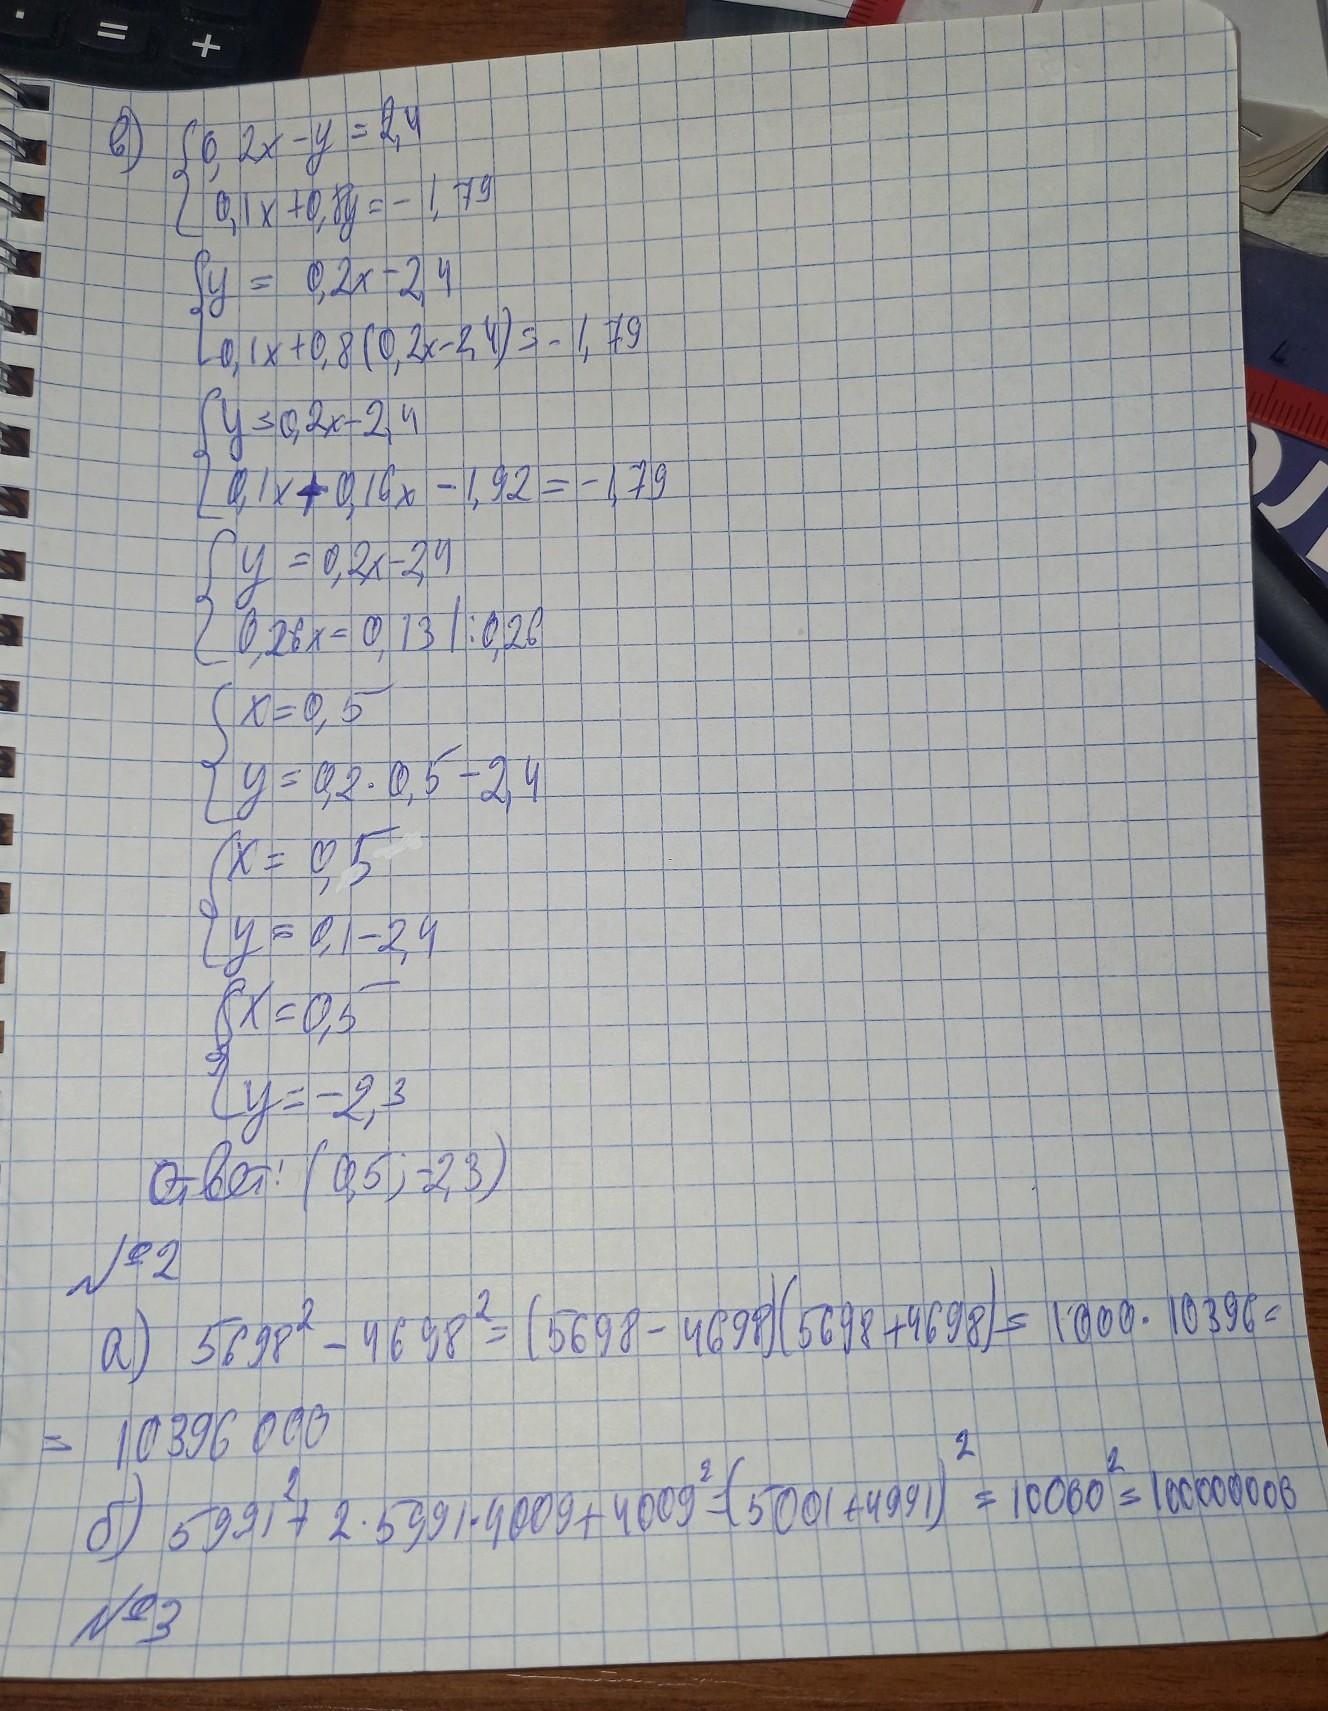 в) {0,2x-y=2,4
{0,1x+0,8y=-1,79
{y = 0,2x-2,4
{0,1x+0,8(0,2x-2,4)=-1,79
{y=0,2x-2,4
{0,1x+0,16x-1,92=-1,79
{y=0,2x-2,4
{0,26x=0,13|:0,26
{x=0,5
{y=0,2·0,5-2,4
{x=0,5
{y=0,1-2,4
{x=0,5
{y=-2,3
Ответ: (0,5; -2,3)
№2
а) 5698²-4698²=(5698-4698)(5698+4698)=1000·10396=
= 10396 000
б) 5991²+2·5991·4009+4009²=(5001+4991)²=10000²=100000000
№3